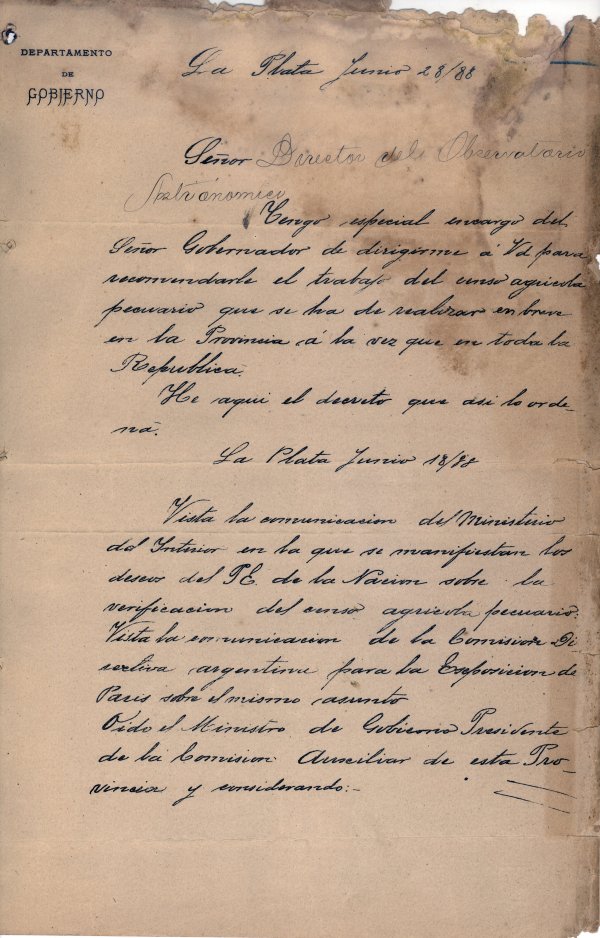 DEPARTAMENTO
DE
GOBIERNO
La Plata Junio 28/88
Señor Director del Observatorio
Astronómico
Tengo especial encargo del
Señor Gobernador de dirigirme á Vd para
recomendarle el trabajo del censo agricola
pecuario que se ha de realizar en breve
en la Provincia á la vez que en toda la
Republica.
He aqui el decreto que asi lo orde-
na.
La Plata Junio 18/88
Vista la comunicacion del Ministerio
del Interior en la que se manifiestan los
deseos del P.E. de la Nacion sobre la
verificacion del censo agricola pecuario.
Vista la comunicacion de la Comision Di
rectiva argentina para la Exposicion de
Paris sobre el mismo asunto
Oido el Ministro de Gobierno Presidente
de la Comision Auxiliar de esta Pro-
vincia y considerando:-